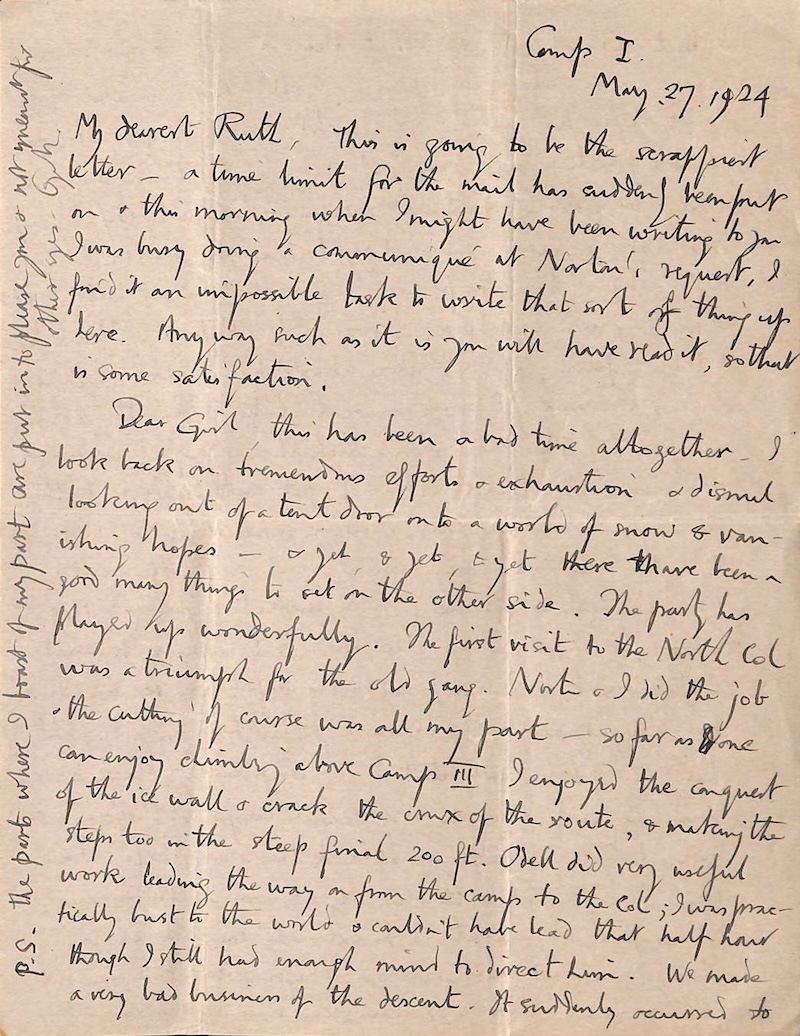 Camp I.
May. 27. 1924
My dearest Ruth, This is going to be the scrappiest
letter — a time limit for the mail has suddenly been put
on & this morning when I might have been writing to you
I was busy doing a communiqué at Norton's request, I
find it an impossible task to write that sort of thing up
here. Anyway such as it is you will have read it, so that
is some satisfaction.
Dear Girl, this has been a bad time altogether — I
look back on tremendous efforts & exhaustion & dismal
looking out of a tent door onto a world of snow & van-
ishing hopes — & yet, & yet, & yet there have been a
good many things to set on the other side. The party has
played up wonderfully. The first visit to the North Col
was a triumph for the old gang. Norton & I did the job
& the cutting of course was all my part — so far as one
can enjoy climbing above Camp III I enjoyed the conquest
of the ice wall & crack the crux of the route, & making the
steps too in the steep final 200 ft. Odell did very useful
work leading the way on from the camp to the Col; I was prac-
tically bust to the world & couldn't have lead that half hour
though I still had enough mind to direct him. We made
a very bad business of the descent. It suddenly occurred to
P.S. The parts where I boast of my part are put in to please you & not meant for
other eyes. G.L.M.